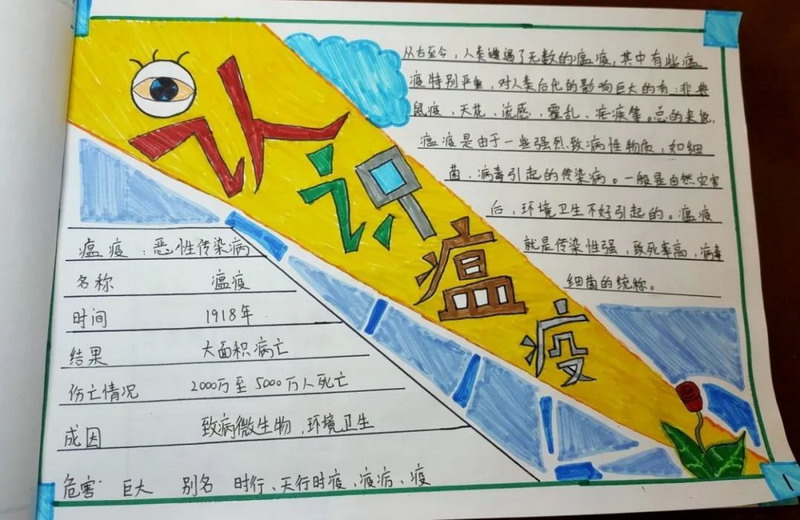 认识瘟疫
从古至今,人类遭遇了无数的瘟疫,其中有些瘟
疫特别严重,对人类后代的影响巨大的有:非典
鼠疫,天花,流感,霍乱,疟疾等。总的来说,
瘟疫是由于一些强烈致病性物质,如细
菌,病毒引起的传染病。一般是自然灾害
后,环境卫生不好引起的。瘟疫
就是传染性强,致死率高,病毒
细菌的统称。
瘟疫:恶性传染病
名称 瘟疫
时间 1918年
结果 大面积病亡
伤亡情况 2000万至5000万人死亡
成因 致病微生物,环境卫生
危害 巨大 别名 时行、天行时疫、疫疠、疫
1